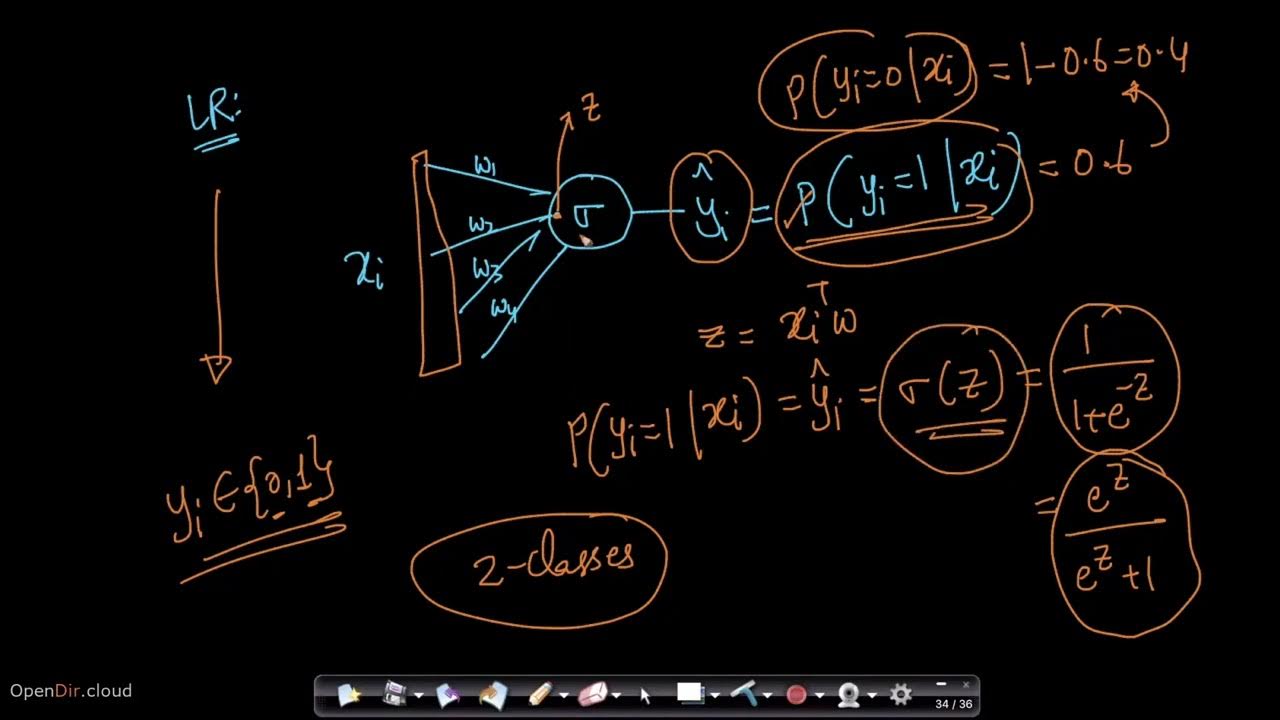 P(yi=0|xi) = 1-0.6=0.4
LR:
z
w1
w2
w3
w4
xi
σ
ŷi = P(yi=1|xi) = 0.6
z = xiᵀw
P(yi=1|xi) = ŷi = σ(z) = 1/(1+e^-z)
= e^z/(e^z+1)
yi ∈ {0,1}
2-classes
OpenDir.cloud
34 / 36